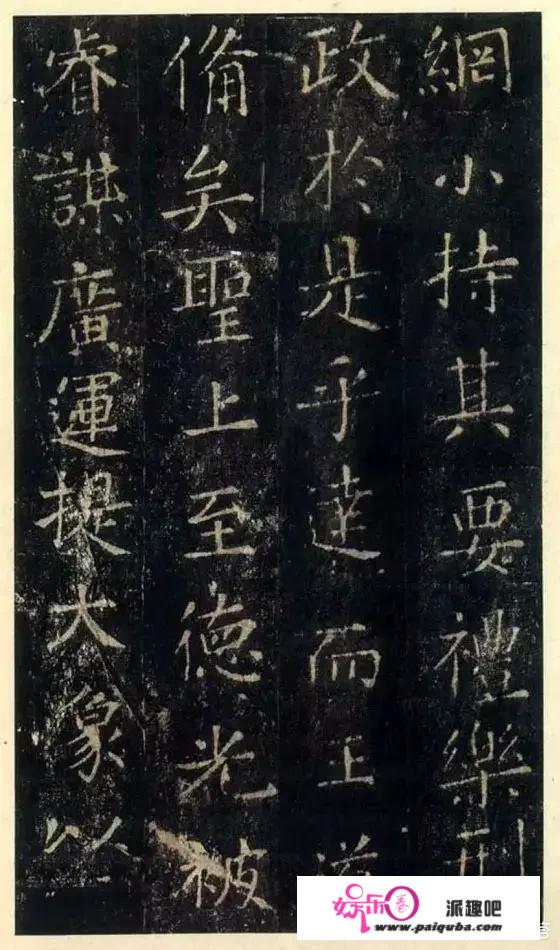 網小持其要禮樂刑
政於是乎達而王道
備矣聖上至德光被
睿謀廣運提大象以
娱乐圈 派趣吧
www.paiquba.com